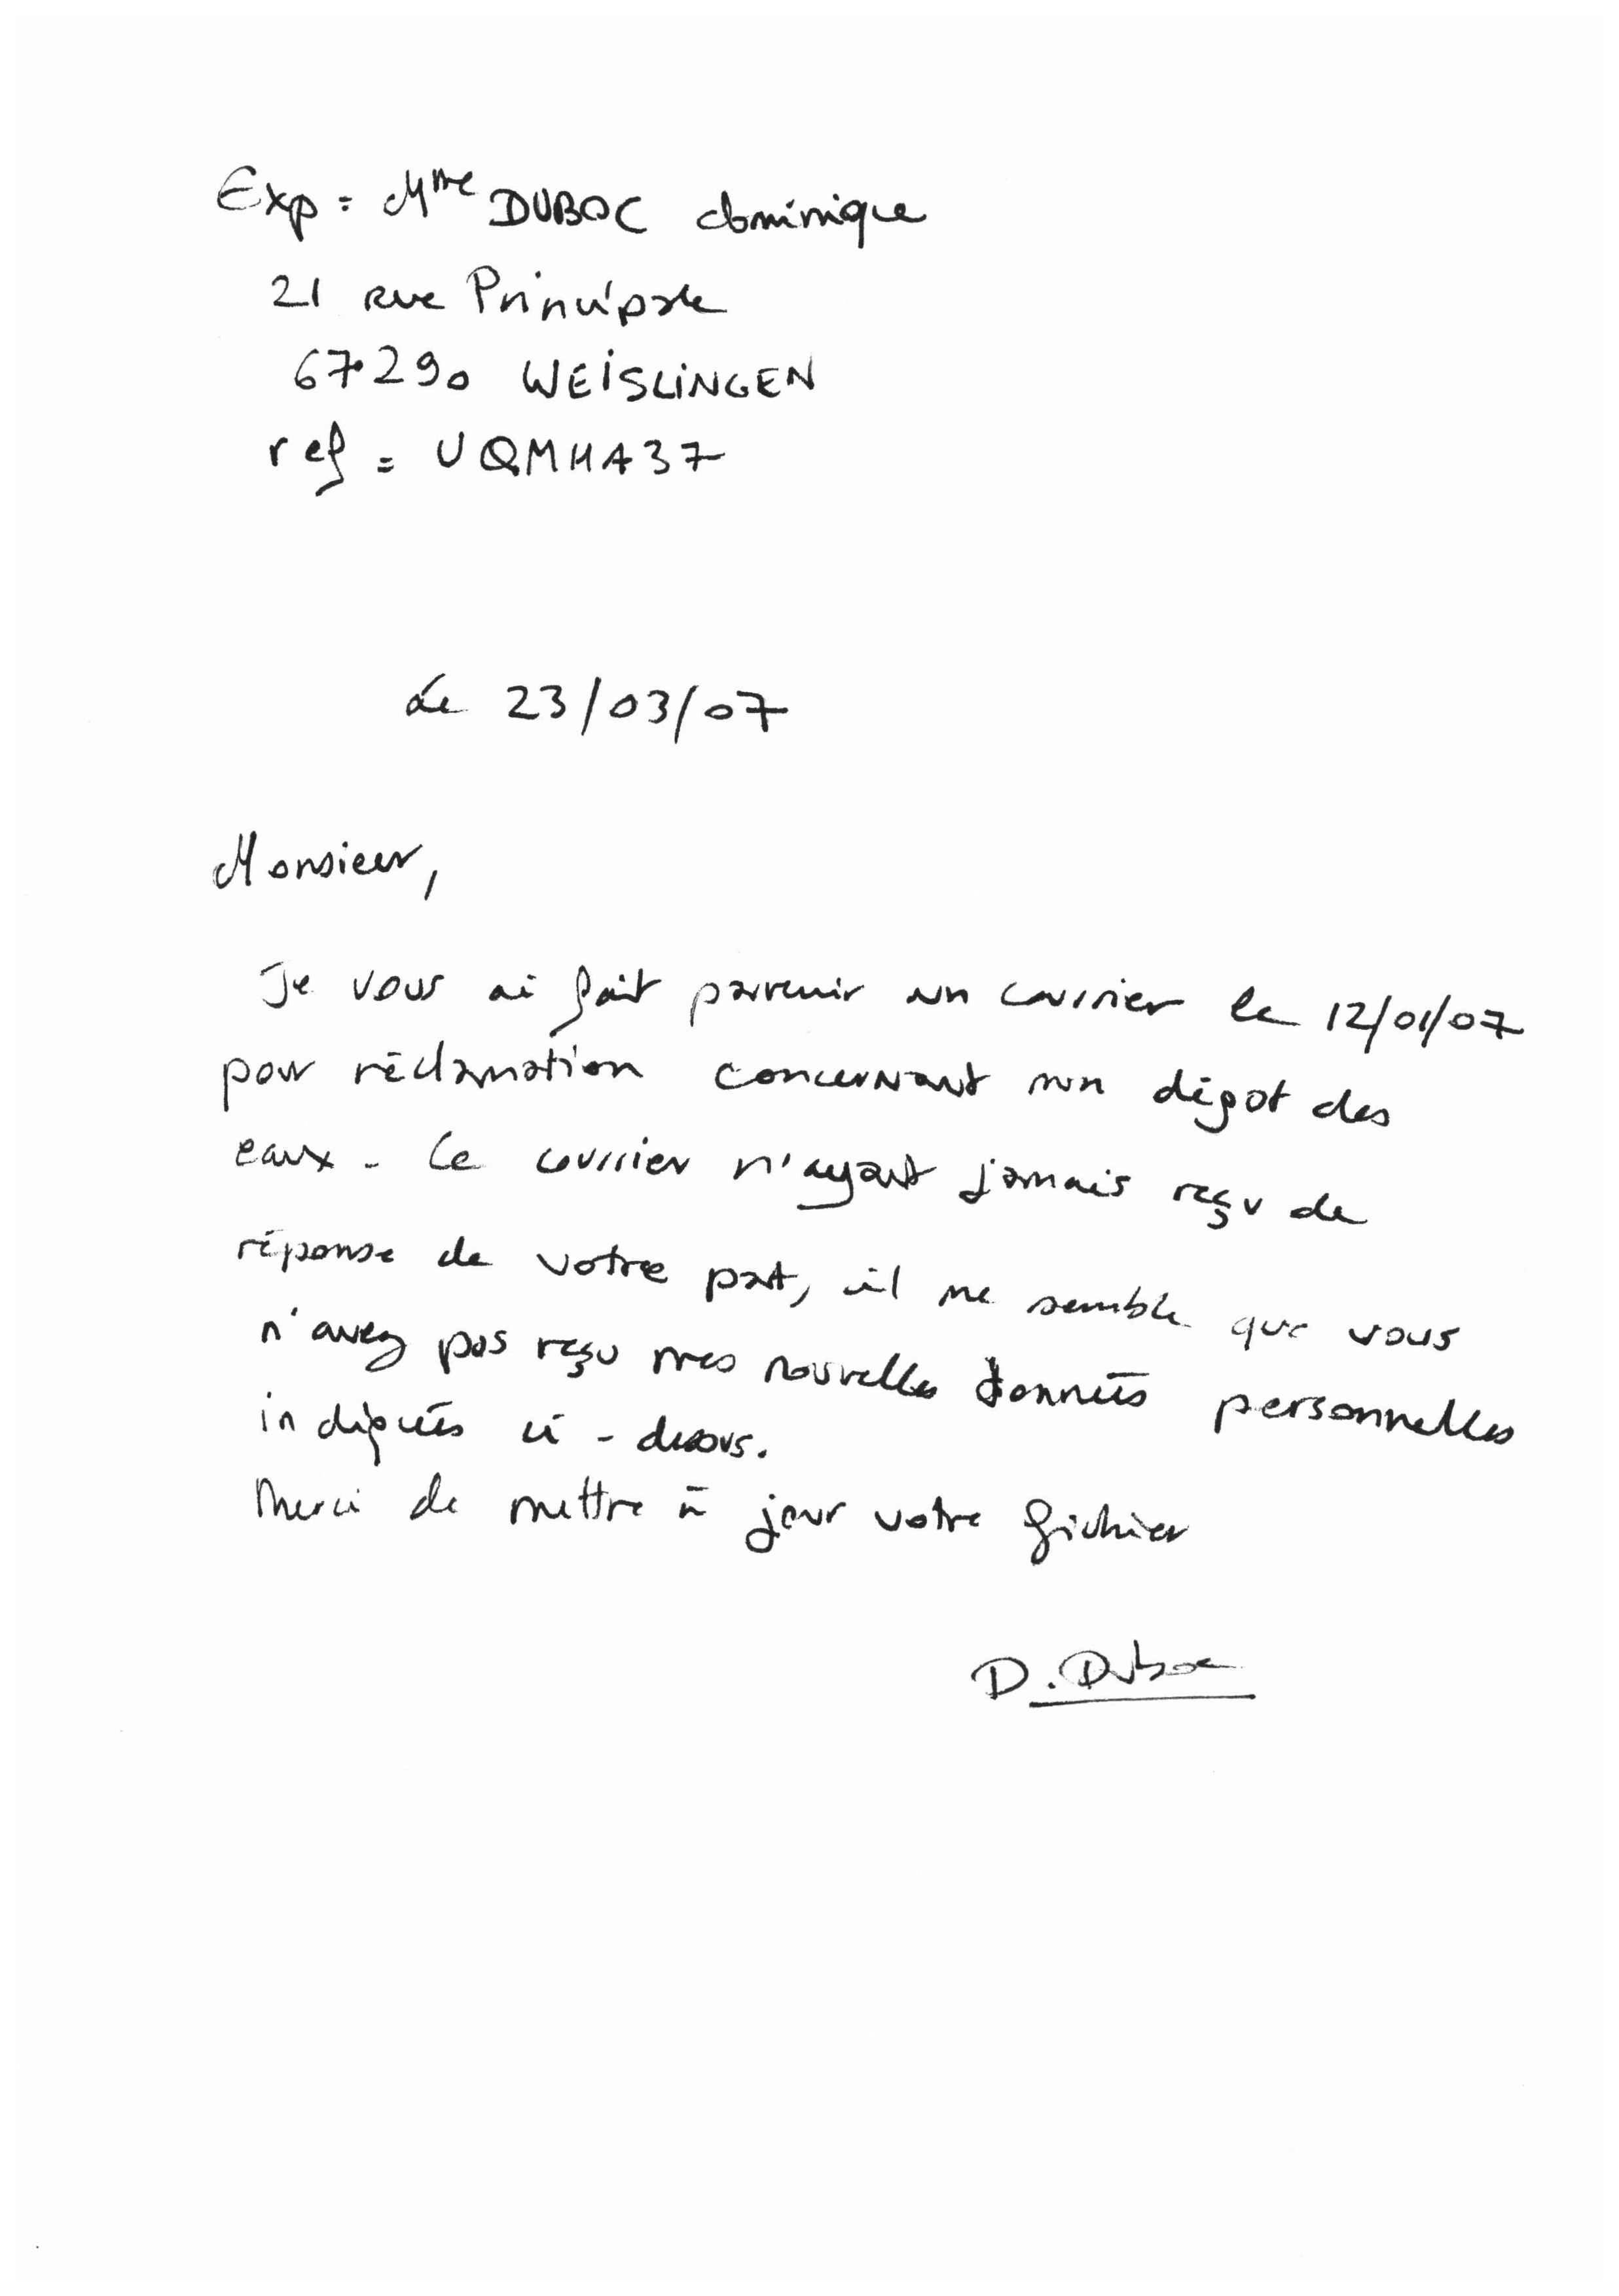 Exp : Mme DUBOC dominique
21 rue Principale
67290 WEISLINGEN
ref = UQMHA37
Le 23/03/07
Monsieur,
Je vous ai fait parvenir un courrier le 12/01/07
pour réclamation concernant un dégot des
eaux. Ce courrier n'ayant jamais reçu de
réponse de votre part, il me semble que vous
n'avez pas reçu mes nouvelles données personnelles
indiquées ci-dessous.
Merci de mettre à jour votre fichier
D. Duboc